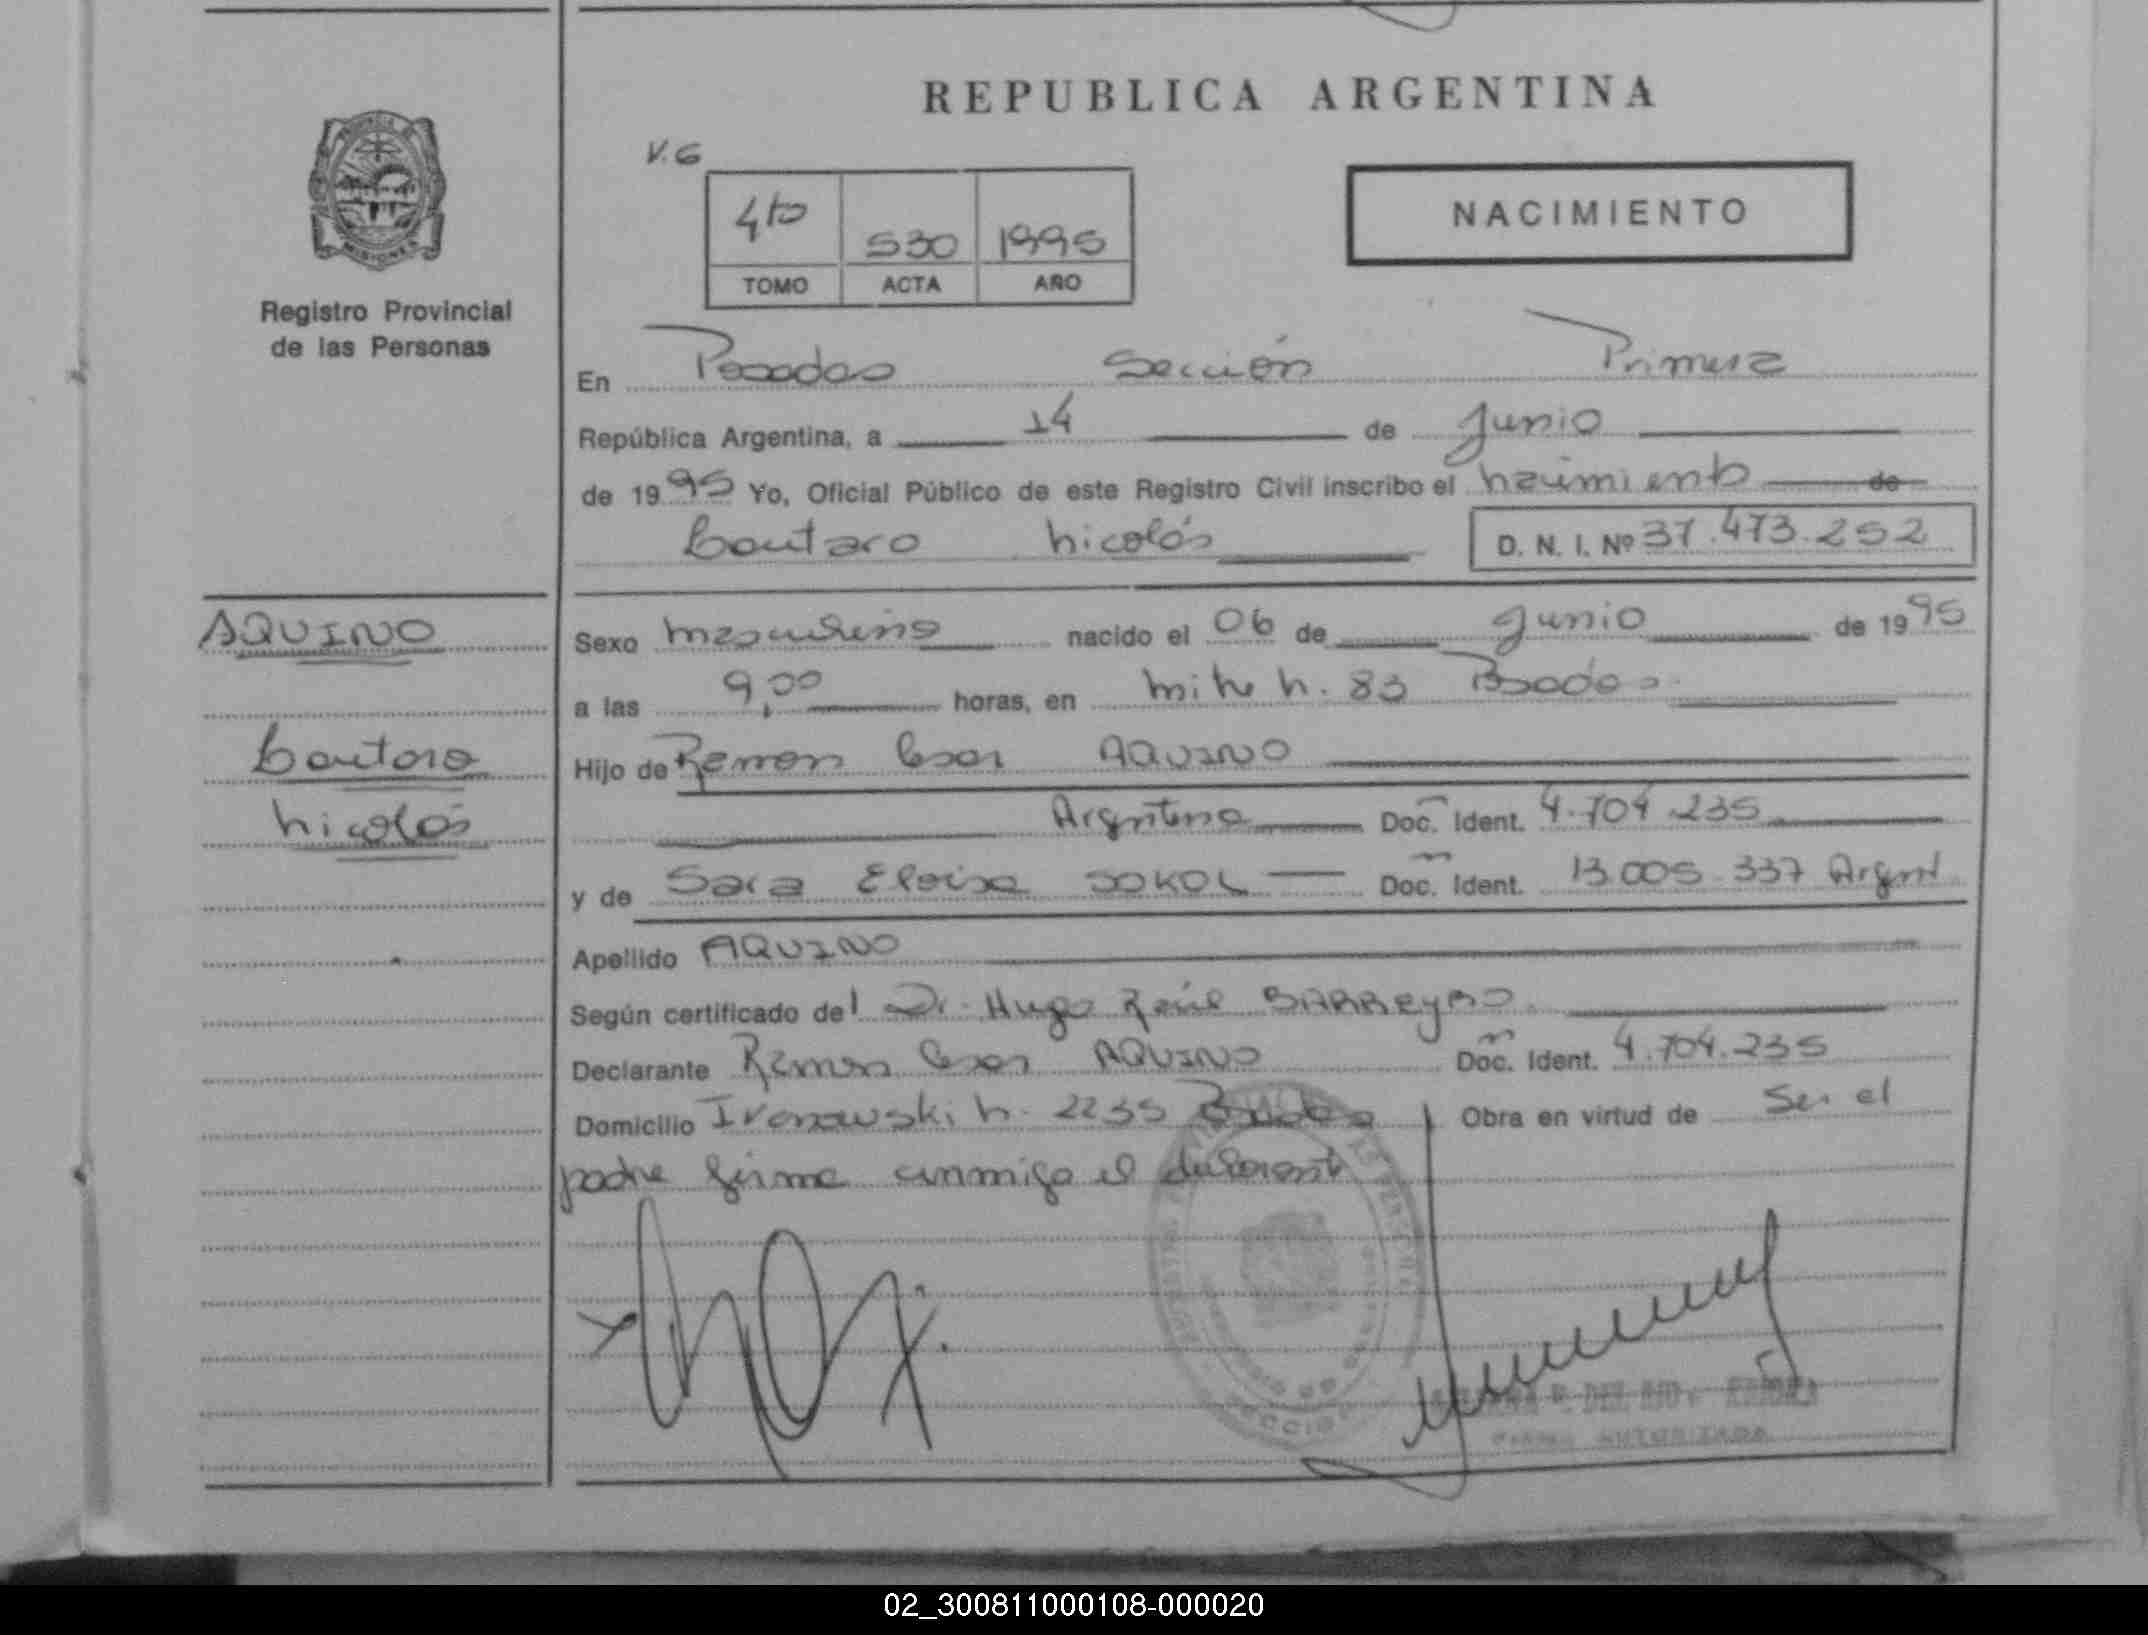 REPUBLICA ARGENTINA
V.G
4to 530 1995
TOMO ACTA AÑO
NACIMIENTO
PROVINCIA DE
MISIONES
Registro Provincial
de las Personas
En Posadas Sección Primera
República Argentina, a 14 de Junio
de 1995 Yo, Oficial Público de este Registro Civil inscribo el nacimiento de
Lautaro Nicolás D. N. I. Nº 37.473.252
AQUINO
Lautaro
Nicolás
Sexo masculino nacido el 06 de Junio de 1995
a las 9,00 horas, en Mitre N. 83 Posadas
Hijo de Ramon Cesar AQUINO
Argentina Doc. Ident. 4.704.235
y de Sara Eloisa SOKOL Doc. Ident. 13.005.337 Argent
Apellido AQUINO
Según certificado del Dr. Hugo René BARREyRO
Declarante Ramon Cesar AQUINO Doc. Ident. 4.704.235
Domicilio Ivanowski N. 2235 Posadas Obra en virtud de Ser el
padre firma conmigo el declarante
SECCION
FIRMA AUTORIZADA
02_300811000108-000020